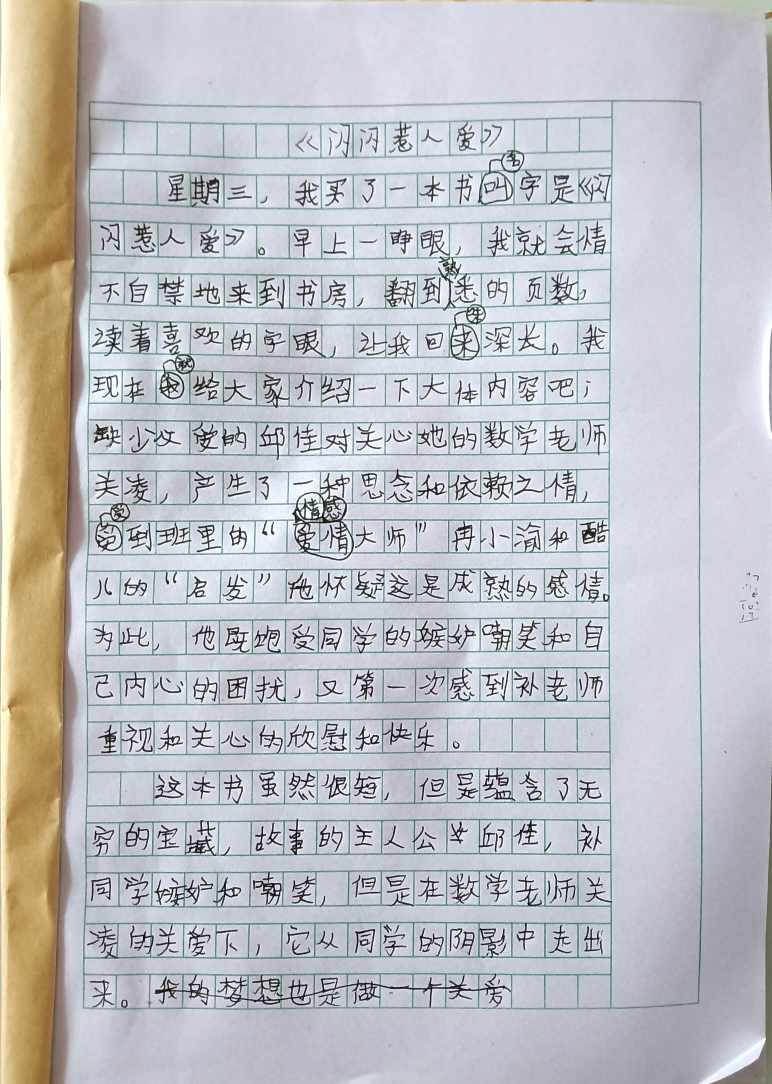 《闪闪惹人爱》
星期三，我买了一本书名字是《闪
闪惹人爱》。早上一睁眼，我就会情
不自禁地来到书房，翻到熟悉的页数，
读着喜欢的字眼，让我回味深长。我
现在就给大家介绍一下大体内容吧；
缺少父爱的邱佳对关心她的数学老师
关凌，产生了一种思念和依赖之情，
受到班里的“情感大师”冉小渝和酷
儿的“启发”他怀疑这是成熟的感情。
为此，他既饱受同学的嫉妒嘲笑和自
己内心的困扰，又第一次感到补老师
重视和关心的欣慰和快乐。
这本书虽然很短，但是蕴含了无
穷的宝藏，故事的主人公女邱佳，补
同学嫉妒和嘲笑，但是在数学老师关
凌的关爱下，它从同学的阴影中走出
来。我的梦想也是做一个关爱